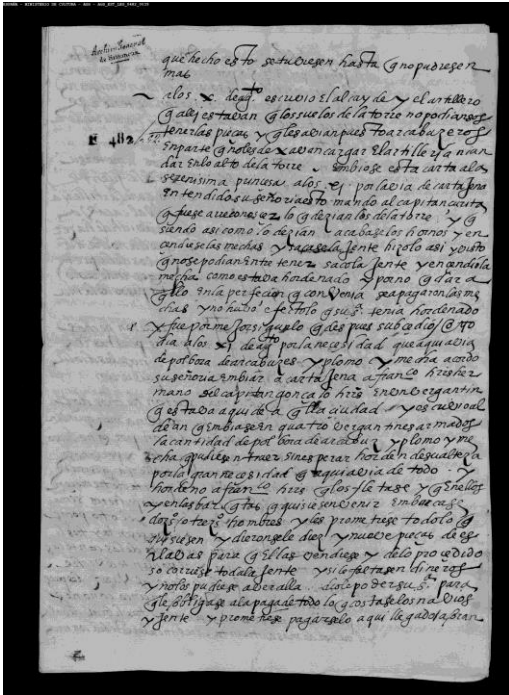 ESPAÑA - MINISTERIO DE CULTURA - AGS - AGS_EST_LEG_
Archivo General
de Simancas
que hecho esto se tuviesen hasta q no pudiesen
mas
a los x de agto escrivio el alcayde y el artillero
q alli estavan q los suelos de la torre no podian
tener las pieças y q les avian puesto arcabuzeros
en parte q no les dexavan cargar el artilleria ni an
dar en lo alto de la torre embiose esta carta a la
E 482
serenisima princesa a los xj por la via de cartajena
entendido su señoria esto mando al capitan
q fuese a reconoscer lo q dezian los de la torre y q
siendo asi como lo dezian sacase los honbres y en
cendiese las mechas y la jente hizolo asi y visto
q no se podian entretener saco la jente y encendio la
mecha como estava hordenado y por no quedar a
quello en la perfecion q convenia se apagaron las me
chas y no hubo efecto lo q su sa tenia hordenado
y fue por mejor sigun lo q despues subcedio / este
dia a los xj de agto por la necesidad que aqui avia
de polbora de arcabuzes y plomo y mecha acordo
su señoria embiar a cartajena a franco hrs her
mano del capitan gonçalo hrs en un vergantin
q estava aqui de aquella ciudad y escrivio al
dean q embiase en quatro vergantines armados
la cantidad de polbora de arcabuz y plomo y me
cha q pudiesen traer sin esperar horden de su alteza
por la gran necesidad q aqui avia de todo y
hordeno a franco hrs q los fletase y q en ellos
y en las barcas q quisiesen venir embarcase
dozos o trezos hombres y les prometiese todo lo q
quisiesen y dieronsele diez y nueve pieças de es
clavas para q ellas vendiese y de lo procedido
socorriese toda la jente y si le faltasen dineros
y no los pudiese aver alla diosele poder su sa para
q le obligase a la paga de todo lo q costase los navios
y jente y prometiese pagarselo aqui llegado a